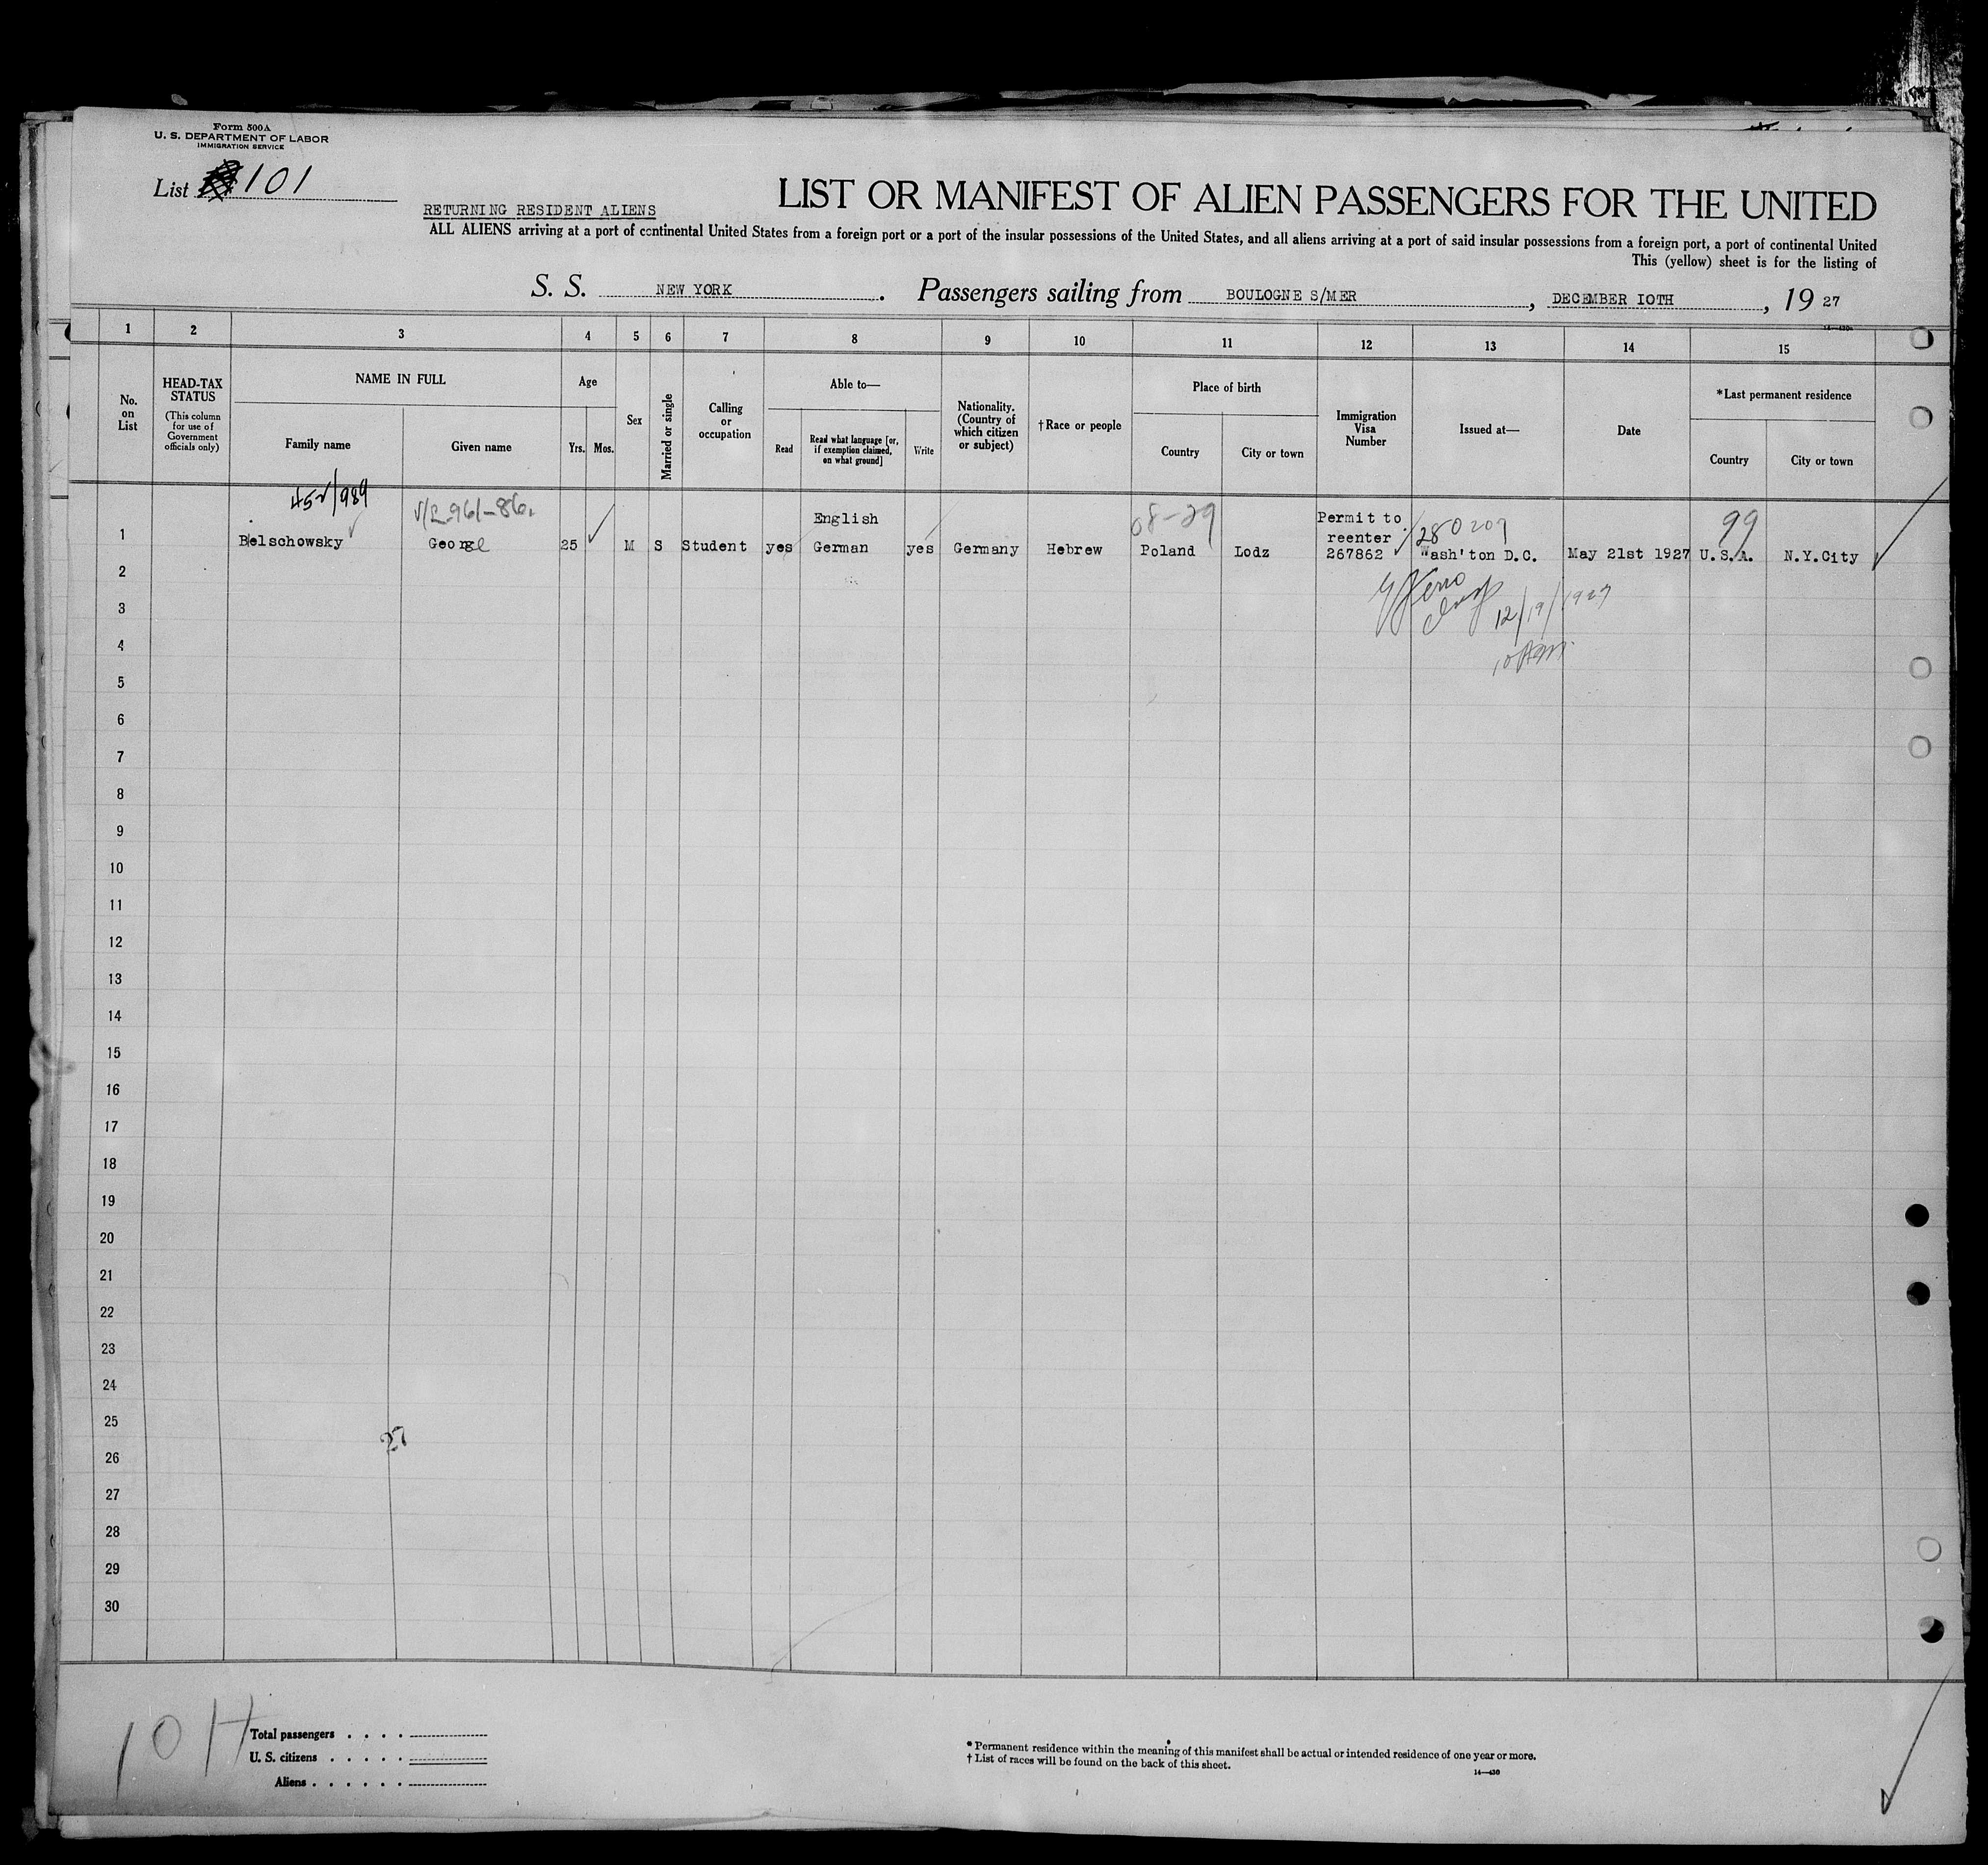 Form 500A
U. S. DEPARTMENT OF LABOR
IMMIGRATION SERVICE
List 101
LIST OR MANIFEST OF ALIEN PASSENGERS FOR THE UNITED
RETURNING RESIDENT ALIENS
ALL ALIENS arriving at a port of continental United States from a foreign port or a port of the insular possessions of the United States, and all aliens arriving at a port of said insular possessions from a foreign port, a port of continental United
This (yellow) sheet is for the listing of
S. S. NEW YORK. Passengers sailing from BOULOGNE S/MER, DECEMBER IOTH, 19 27
1 2 3 4 5 6 7 8 9 10 11 12 13 14 15
No. on List
HEAD-TAX STATUS
(This column for use of Government officials only)
NAME IN FULL
Family name
Given name
Age
Yrs.
Mos.
Sex
Married or single
Calling or occupation
Able to—
Read
Read what language [or, if exemption claimed, on what ground]
Write
Nationality. (Country of which citizen or subject)
†Race or people
Place of birth
Country
City or town
Immigration Visa Number
Issued at—
Date
*Last permanent residence
Country
City or town
452/989
08-29
280209
99
English
Permit to
reenter
1 Belschowsky George 25 M S Student yes German yes Germany Hebrew Poland Lodz 267862 Wash'ton D.C. May 21st 1927 U.S.A. N.Y.City
2
12/19/1927
3
4
5
6
7
8
9
10
11
12
13
14
15
16
17
18
19
20
21
22
23
24
25
27
26
27
28
29
30
Total passengers . . . .
U. S. citizens . . . . .
Aliens . . . . . .
10 H
* Permanent residence within the meaning of this manifest shall be actual or intended residence of one year or more.
† List of races will be found on the back of this sheet.
14—430